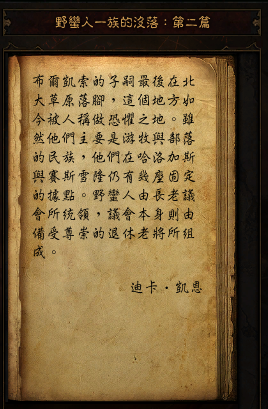 野蠻人一族的沒落：第二篇
布爾凱索的子嗣最後在北
大草原落腳，這個地方如
今被人稱做恐懼之地。雖
然他們主要是遊牧與部落
的民族，他們在哈洛加斯
與賽斯雪陸仍有幾座固定
的據點。野蠻人由長老議
會所統領，會議本身則由
備受尊崇的退休老將所組
成。
迪卡·凱恩